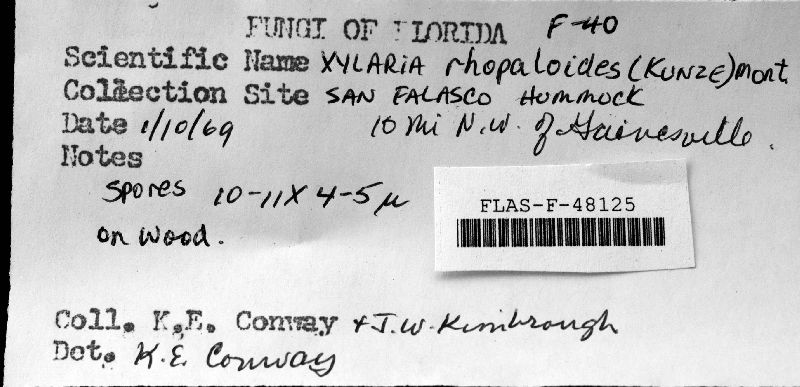 FUNGI OF FLORIDA F-40
Scientific Name XYLARIA rhopaloides (KUNZE) Mont.
Collection Site SAN FALASCO HUMMOCK
Date 1/10/69 10 mi N.W. of Gainesville.
Notes
spores 10-11 X 4-5 µ
on wood.
FLAS-F-48125
Coll. K.E. Conway + J.W. Kimbrough
Det. K.E. Conway